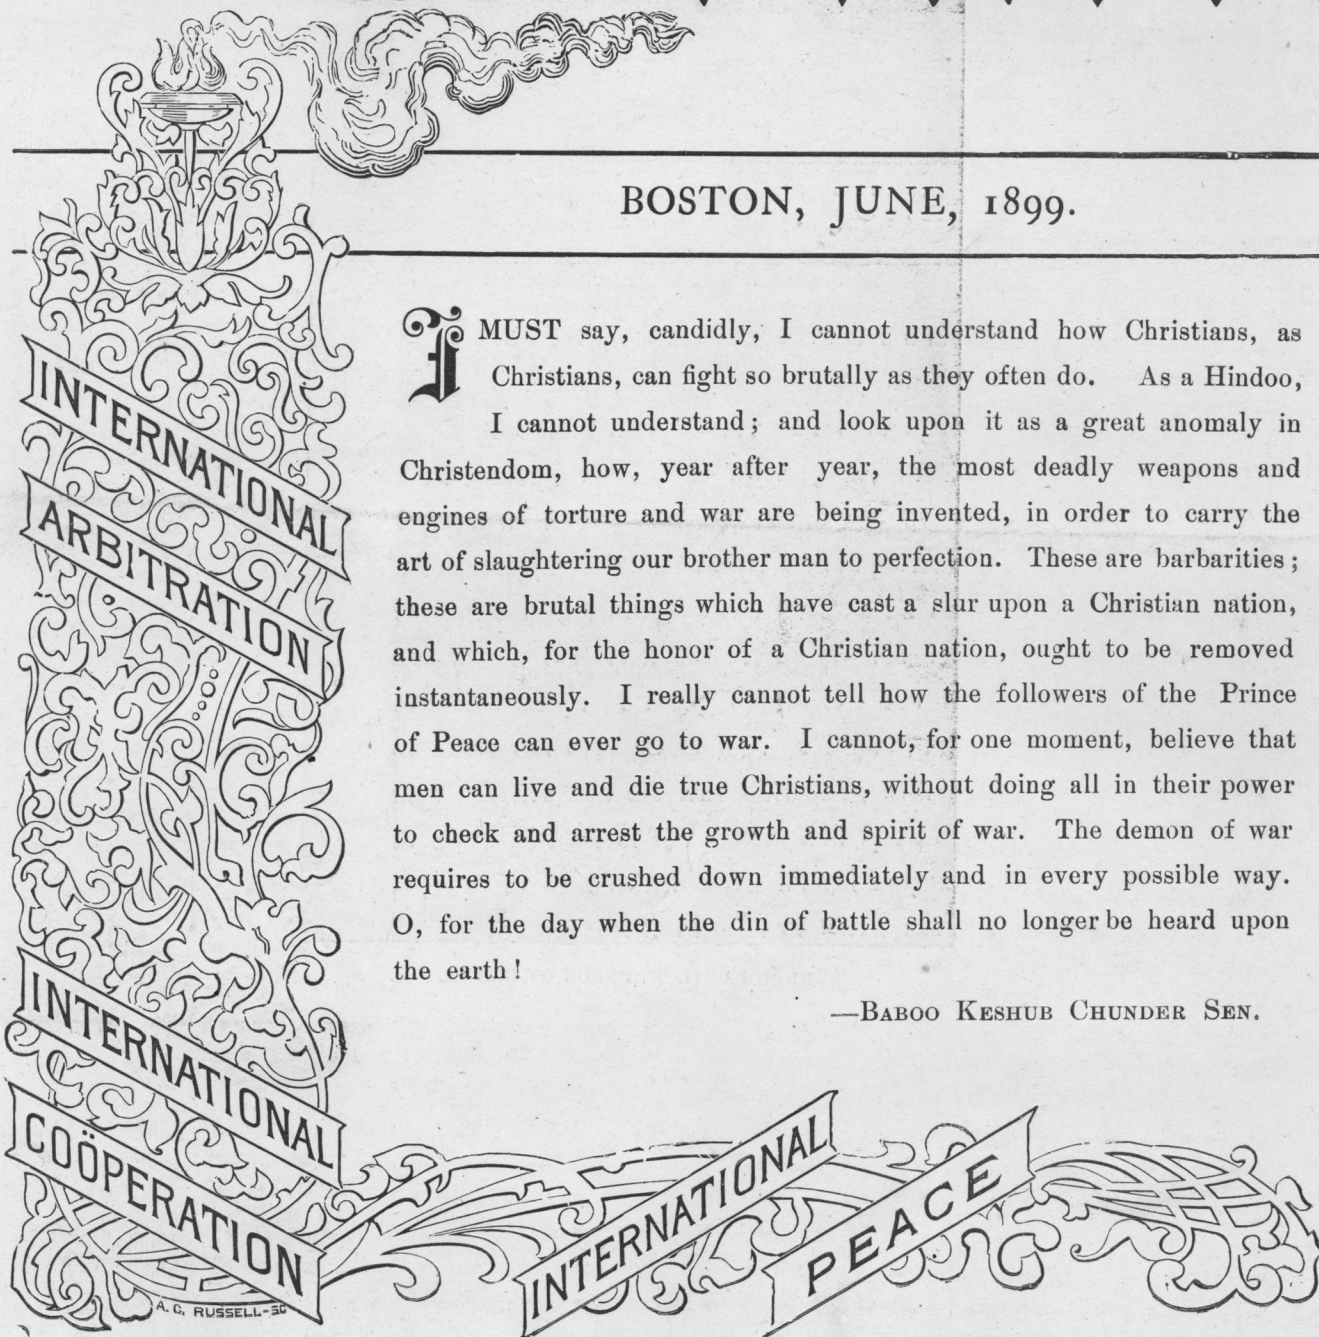 BOSTON, JUNE, 1899.
I MUST say, candidly, I cannot understand how Christians, as
Christians, can fight so brutally as they often do. As a Hindoo,
I cannot understand; and look upon it as a great anomaly in
Christendom, how, year after year, the most deadly weapons and
engines of torture and war are being invented, in order to carry the
art of slaughtering our brother man to perfection. These are barbarities;
these are brutal things which have cast a slur upon a Christian nation,
and which, for the honor of a Christian nation, ought to be removed
instantaneously. I really cannot tell how the followers of the Prince
of Peace can ever go to war. I cannot, for one moment, believe that
men can live and die true Christians, without doing all in their power
to check and arrest the growth and spirit of war. The demon of war
requires to be crushed down immediately and in every possible way.
O, for the day when the din of battle shall no longer be heard upon
the earth!
—BABOO KESHUB CHUNDER SEN.
INTERNATIONAL
ARBITRATION
INTERNATIONAL
COÖPERATION
INTERNATIONAL
PEACE
A. C. RUSSELL-SC